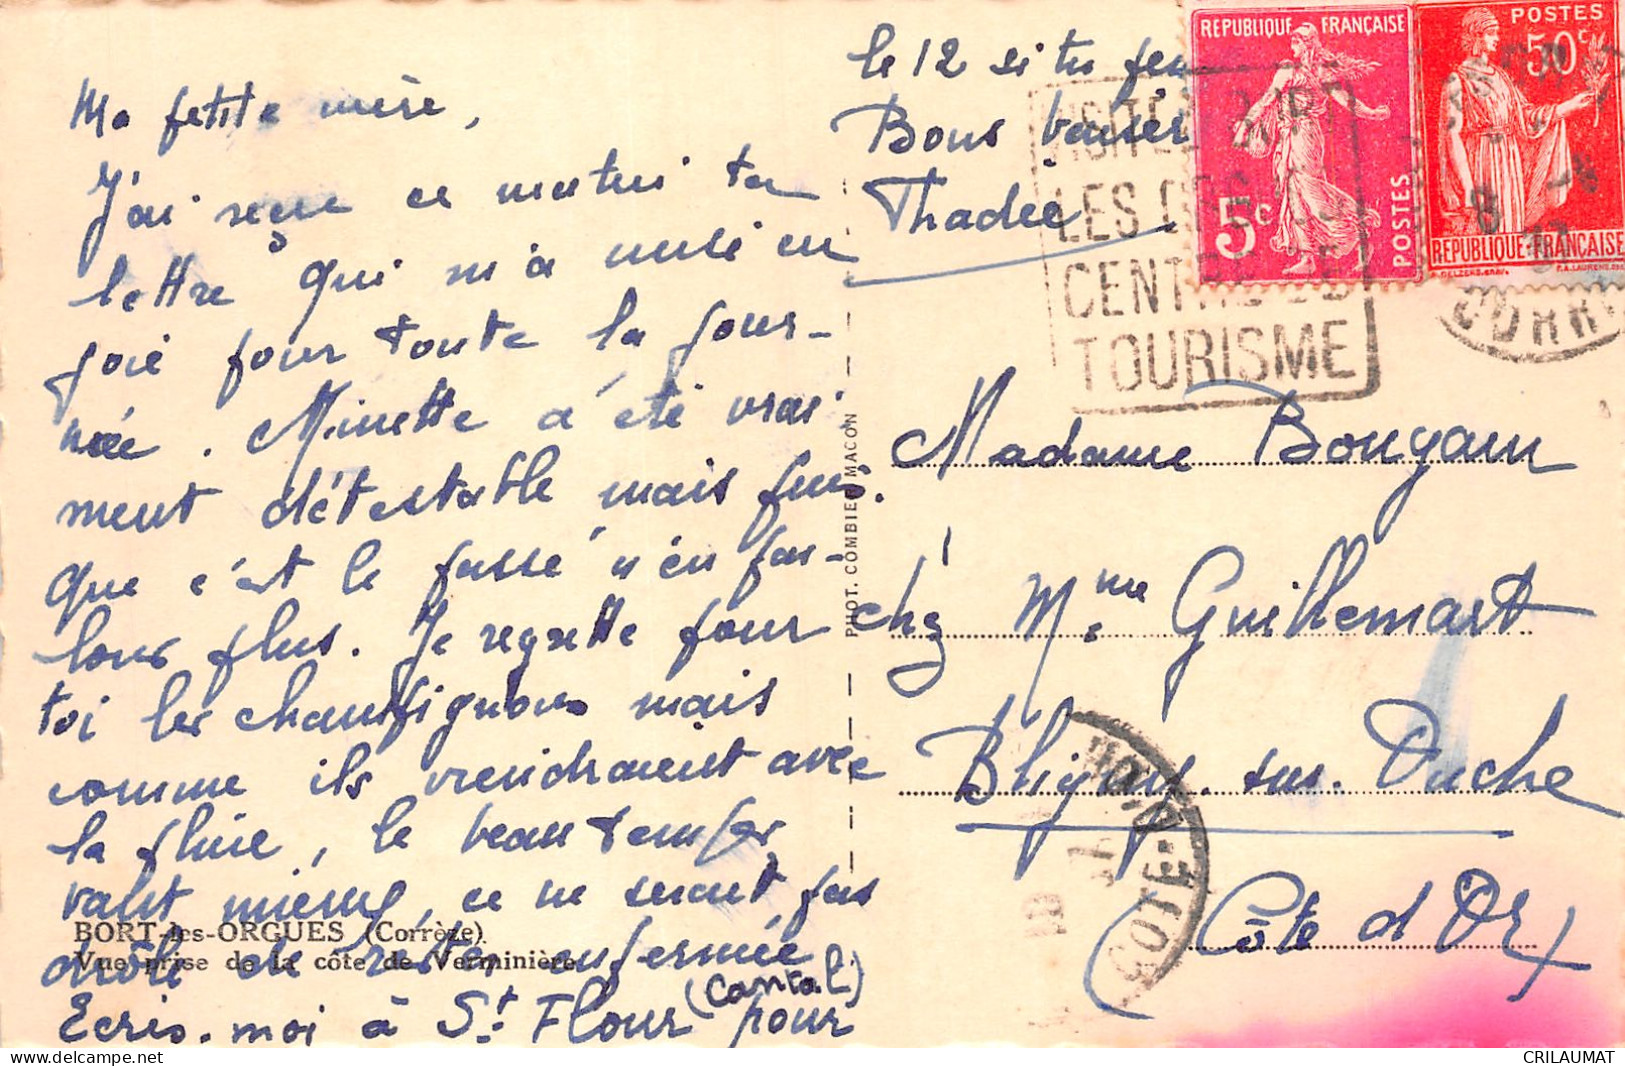 Ma petite mère,
J'ai reçue ce matin ta
lettre qui m'a mise en
joie pour toute la jour-
née. Minette a été vrai-
ment détestable mais puis-
que c'est le passé n'en par-
lons plus. Je regrette pour
toi les champignons mais
comme ils viendraient avec
la pluie, le beau temps
vaut mieux, ce ne serait pas
drôle de rester enfermée
Ecris-moi à St Flour (Cantal) pour
le 12 si tu peux
Bons baisers
Thadée
BORT-les-ORGUES (Corrèze)
Vue prise de la côte de Verminière
PHOT. COMBIER MACON
REPUBLIQUE FRANÇAISE
5c
POSTES
POSTES
50c
REPUBLIQUE FRANÇAISE
VISITEZ BORT
LES ORGUES
CENTRE DE
TOURISME
CORRÈZE
Madame Bougain
chez Mme Guillemart
Bligny-sur-Ouche
Côte d'Or
COTE-D'OR
CRILAUMAT